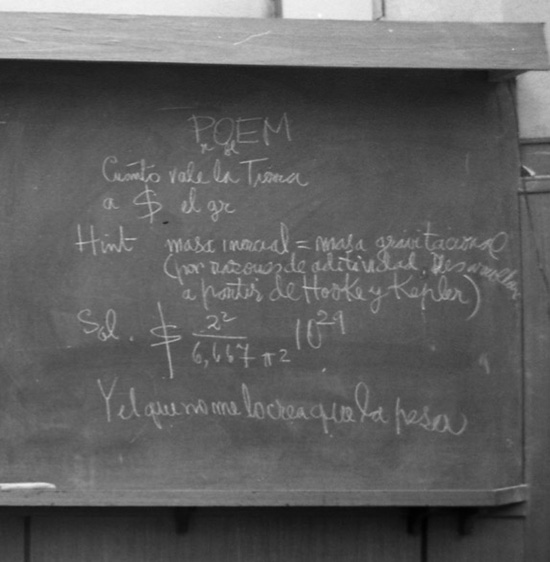 POEM
Cuánto vale la Tierra
a $ el gr
Hint masa inercial = masa gravitacional
(por razones de aditividad.
a partir de Hooke y Kepler)
Sol. $ 2² / 6,667 π² 10²⁹
Y el que no me lo crea que la pesa